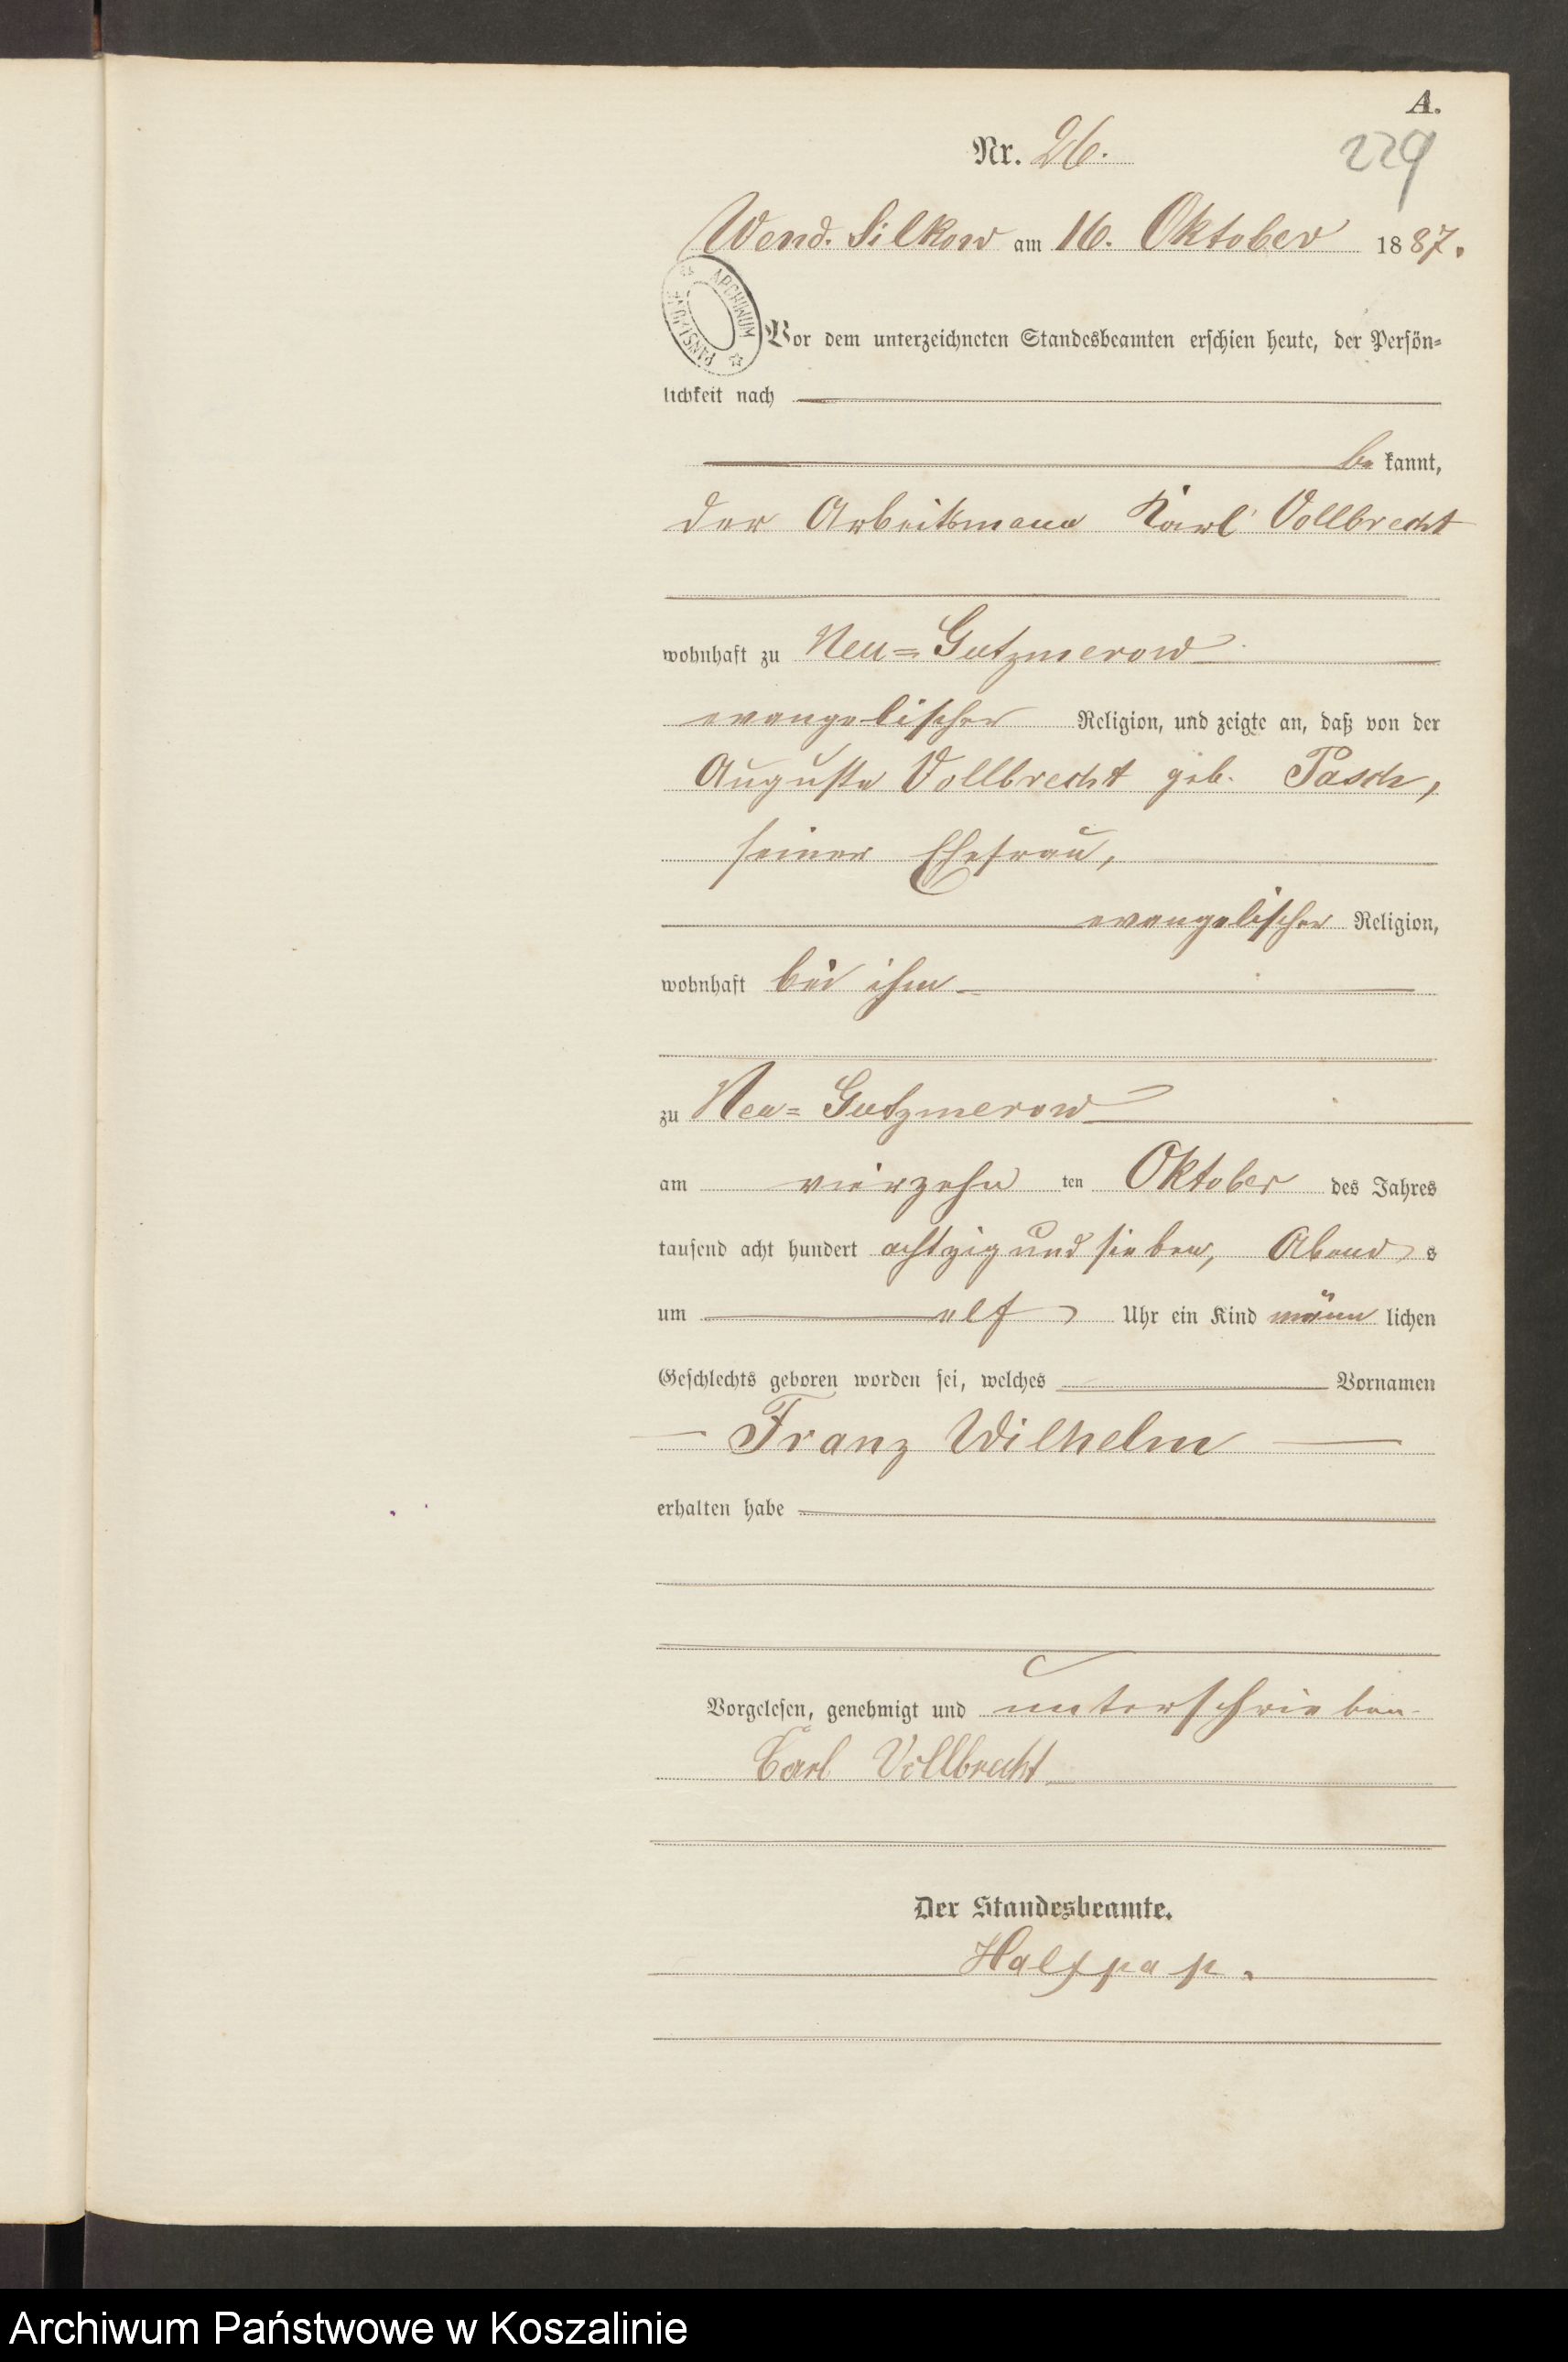 A.
Nr. 26.
229
Wend. Silkow am 16. Oktober 1887.
ARCHIWUM PAŃSTWOWE
Vor dem unterzeichneten Standesbeamten erschien heute, der Persön=
lichkeit nach
be kannt,
der Arbeitsmann Karl Vollbrecht
wohnhaft zu Neu=Gutzmerow
evangelischer Religion, und zeigte an, daß von der
Auguste Vollbrecht geb. Pasch,
seiner Ehefrau,
evangelischer Religion,
wohnhaft bei ihm
zu Neu=Gutzmerow
am vierzehn ten Oktober des Jahres
tausend acht hundert achtzig und sieben, Abend s
um elf Uhr ein Kind männ lichen
Geschlechts geboren worden sei, welches Vornamen
Franz Wilhelm
erhalten habe
Vorgelesen, genehmigt und unterschrieben
Carl Vollbrecht
Der Standesbeamte.
Halfpap.
Archiwum Państwowe w Koszalinie